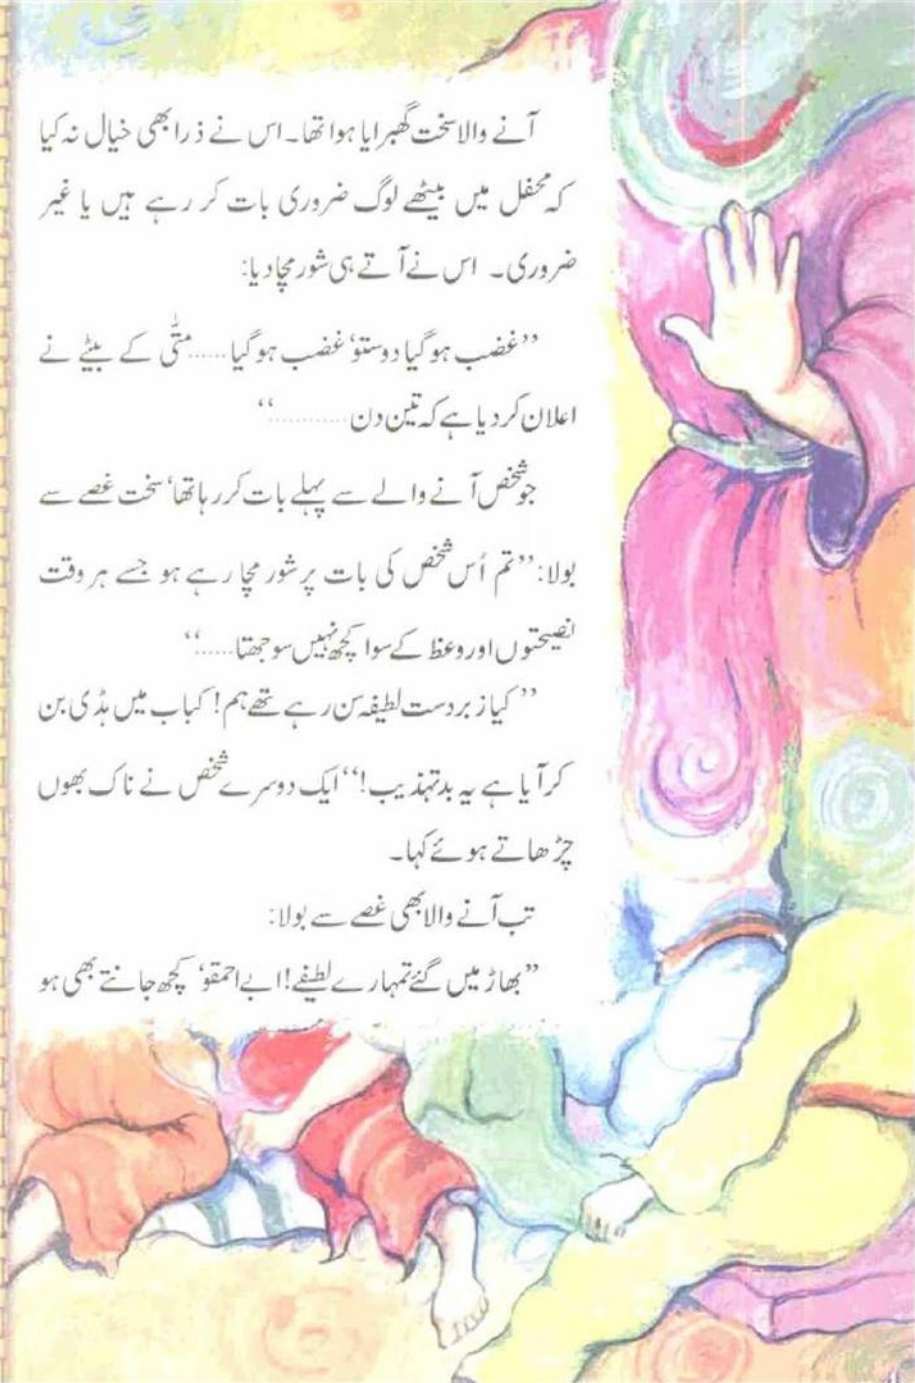 آنے والا سخت گھبرایا ہوا تھا۔ اس نے ذرا بھی خیال نہ کیا
کہ محفل میں بیٹھے لوگ ضروری بات کر رہے ہیں یا غیر
ضروری۔ اس نے آتے ہی شور مچا دیا:
”غضب ہو گیا دوستو‘ غضب ہو گیا ...... متّٰی کے بیٹے نے
اعلان کر دیا ہے کہ تین دن ............“
جو شخص آنے والے سے پہلے بات کر رہا تھا‘ سخت غصے سے
بولا: ”تم اُس شخص کی بات پر شور مچا رہے ہو جسے ہر وقت
نصیحتوں اور وعظ کے سوا کچھ نہیں سوجھتا ......“
”کیا زبردست لطیفہ سن رہے تھے ہم! کباب میں ہڈی بن
کر آیا ہے یہ بدتہذیب!“ ایک دوسرے شخص نے ناک بھوں
چڑھاتے ہوئے کہا۔
تب آنے والا بھی غصے سے بولا:
”بھاڑ میں گئے تمہارے لطیفے! ابے احمقو‘ کچھ جانتے بھی ہو